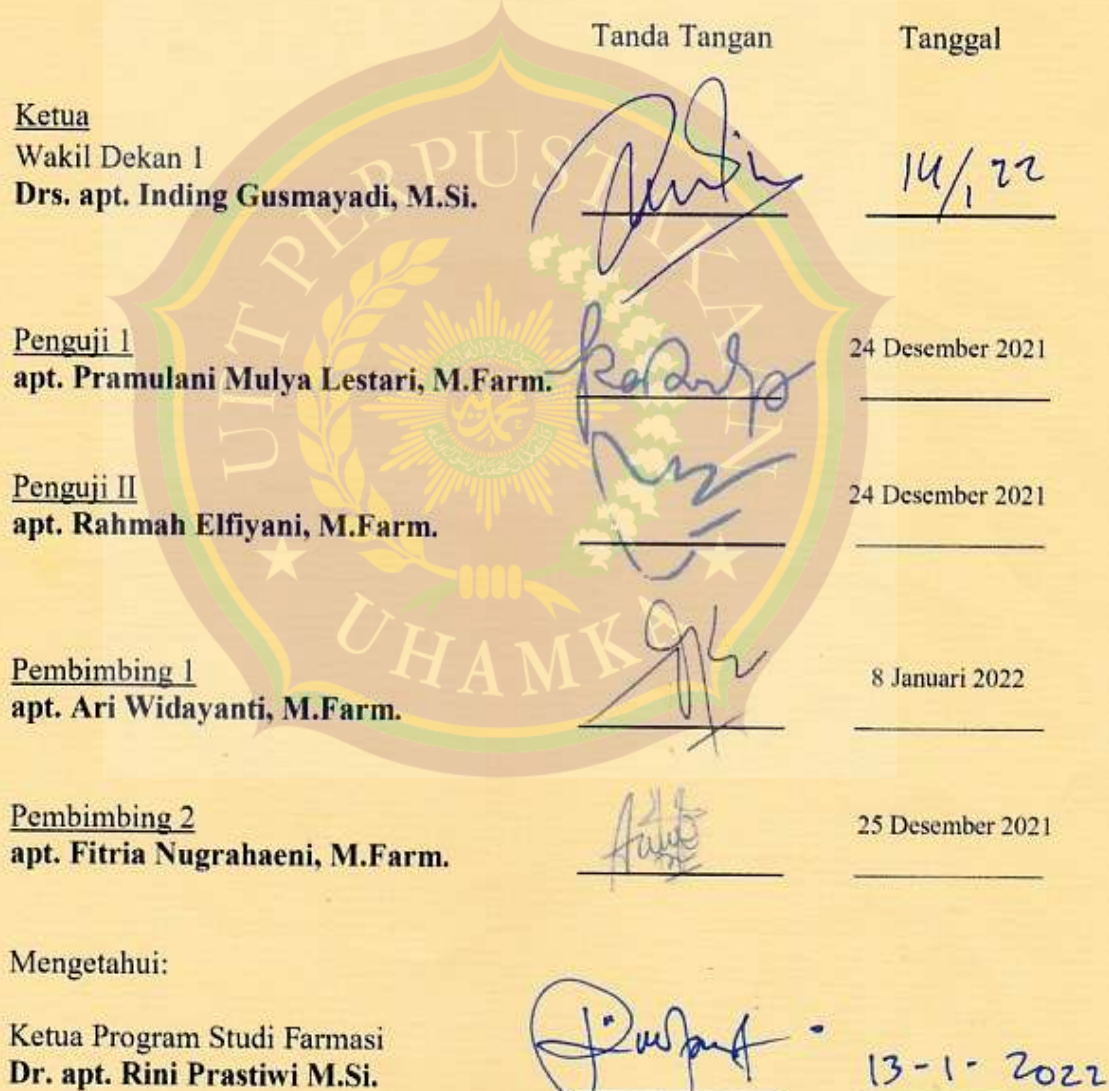 Tanda Tangan Tanggal
Ketua
Wakil Dekan 1
Drs. apt. Inding Gusmayadi, M.Si.
14/1 22
Penguji 1
apt. Pramulani Mulya Lestari, M.Farm.
24 Desember 2021
Penguji II
apt. Rahmah Elfiyani, M.Farm.
24 Desember 2021
Pembimbing 1
apt. Ari Widayanti, M.Farm.
8 Januari 2022
Pembimbing 2
apt. Fitria Nugrahaeni, M.Farm.
25 Desember 2021
Mengetahui:
Ketua Program Studi Farmasi
Dr. apt. Rini Prastiwi M.Si.
13-1-2022
UIT PERPUSTAKAAN
UHAMKA